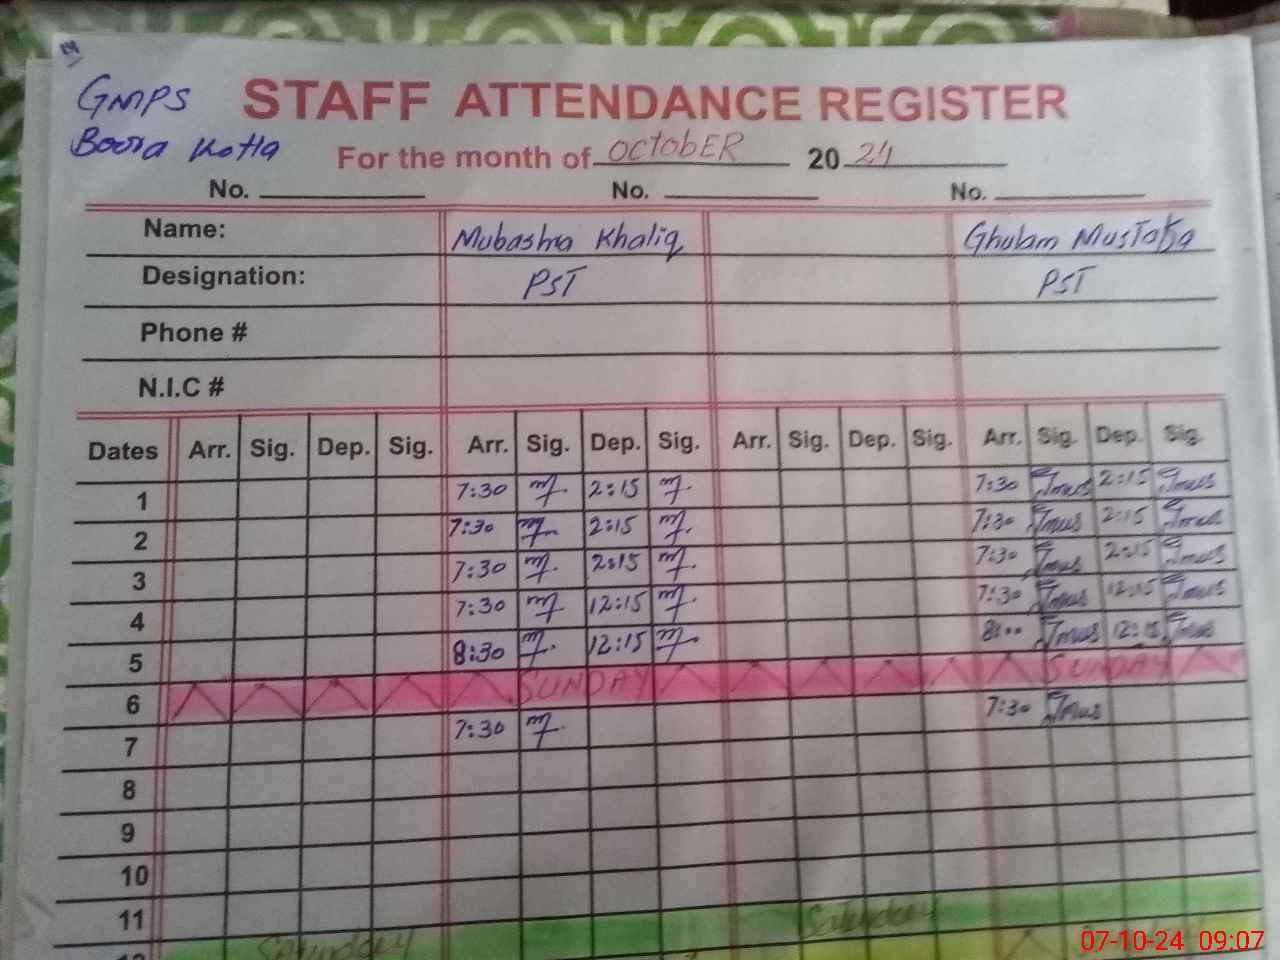 GMPS STAFF ATTENDANCE REGISTER
Boora Kotla For the month of October 2024
No. No. No.
Name: Mubashra Khaliq Ghulam Mustafa
Designation: PST PST
Phone #
N.I.C #
Dates Arr. Sig. Dep. Sig. Arr. Sig. Dep. Sig. Arr. Sig. Dep. Sig. Arr. Sig. Dep. Sig.
1 7:30 2:15 7:30 2:15
2 7:30 2:15 7:30 2:15
3 7:30 2:15 7:30 2:15
4 7:30 12:15 7:30 12:15
5 8:30 12:15 8:00 12:15
6 SUNDAY SUNDAY
7 7:30 7:30
8
9
10
11 Saturday
12 Saturday
07-10-24 09:07